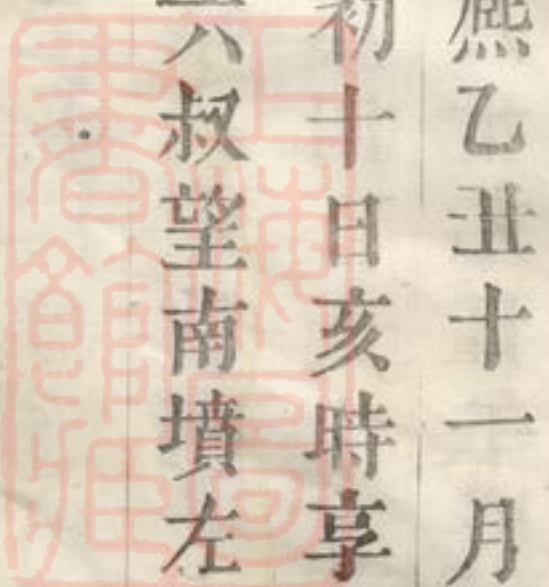 熙乙丑十一月
初十日亥時享
六叔望南墳左